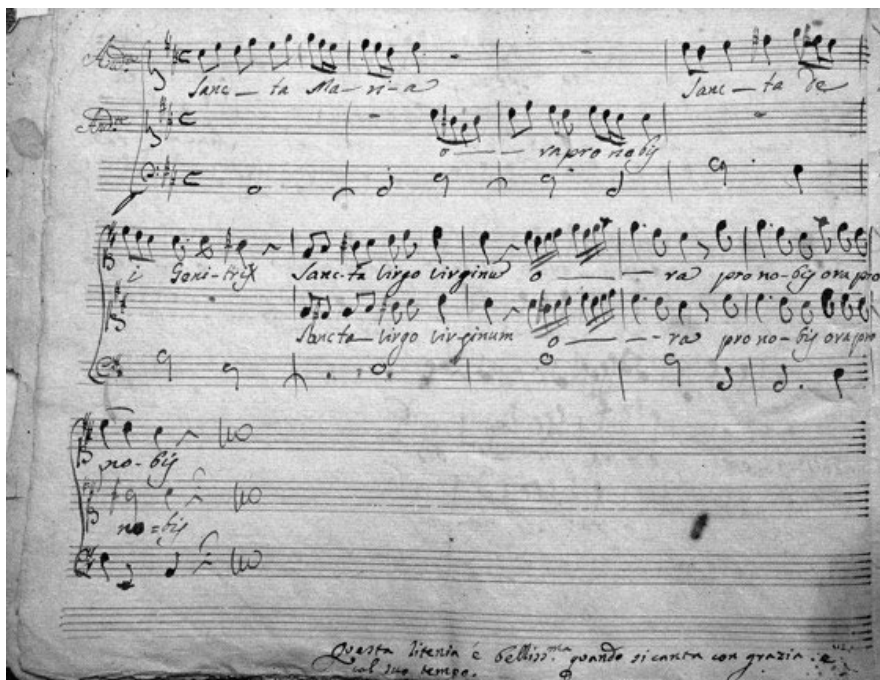 And.e Sanc - ta Ma - ri - a Sanc - ta De
And.e o - - - ra pro nobis
i Geni - trix Sanc - ta Virgo Virginũ o - - - ra pro no - bis ora pro
Sancta - Virgo Virginum o - - - ra pro no - bis ora pro
no - bis
no = bis
Questa litenia é belliss.ma quando si canta con grazia e
col suo tempo.